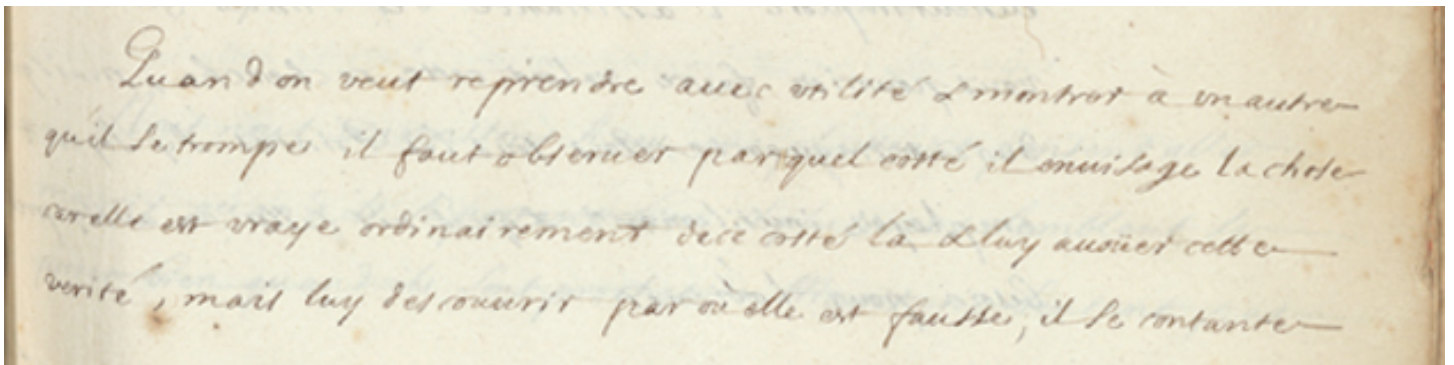 Quand on veut reprendre auec vtilité & montrer à vn autre
quil se trompe il faut obseruer par quel costé il enuisage la chose
car elle est vraye ordinairement de ce costé la & luy auoüer cette
verité, mais luy descouurir par où elle est fausse, il se contante